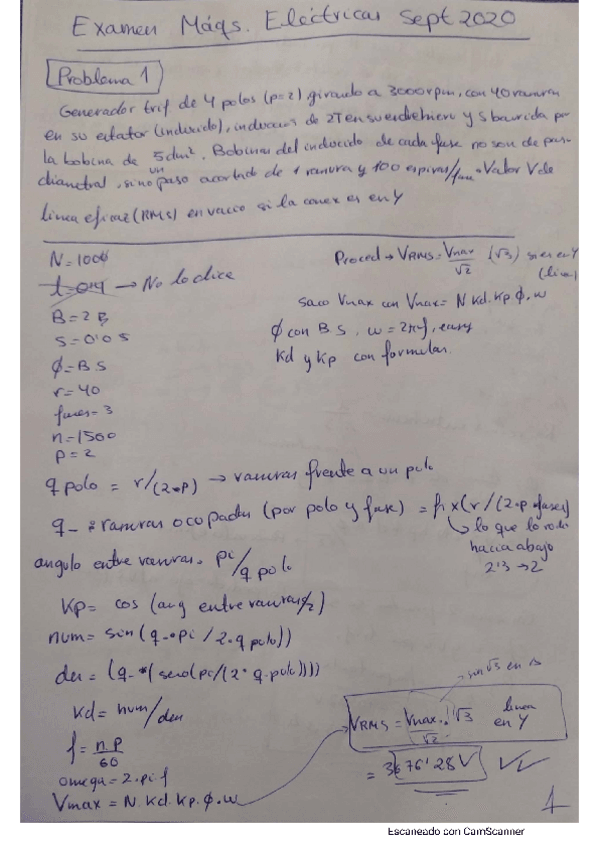 Examen Máqs. Eléctricas Sept 2020
Problema 1
Generador trif de 4 polos (p=2) girando a 3000 rpm, con 40 ranuras
en su estator (inducido), induccion de 2T en su entrehierro y S barrida por
la bobina de 5dm². Bobinas del inducido de cada fase no son de paso
diametral, sino un paso acortado de 1 ranura y 100 espiras/fase. Valor V de
linea eficaz (RMS) en vacio si la conex es en Y
N=100
→ No lo dice
B=2
S=0'05
ϕ=B S
r=40
fases=3
n=1500
P=2
Proced → VRMS = Vmax/√2 (√3) si es en Y
(linea)
saco Vmax con Vmax= N Kd. Kp. ϕ. w
ϕ con B S, w=2πf,
Kd y Kp con formulas.
q polo = r/(2*P) → ranuras frente a un polo
q_ = ranuras ocupadas (por polo y fase) = fix(r/(2*p*fases))
↳ lo que lo
hacia abajo
2'3 → 2
angulo entre ranuras = pi/q polo
Kp= cos (ang entre ranuras/2)
num= sin(q_*pi/2*q polo))
den= (q_*(seno(pi/(2*q_polo))))
Kd= num/den
f= n P/60
omega=2.pi.f
Vmax = N. Kd. Kp. ϕ. w
sin √3 en Δ
VRMS = Vmax/√2 . √3 linea
en Y
= 3676'28V
1
Escaneado con CamScanner